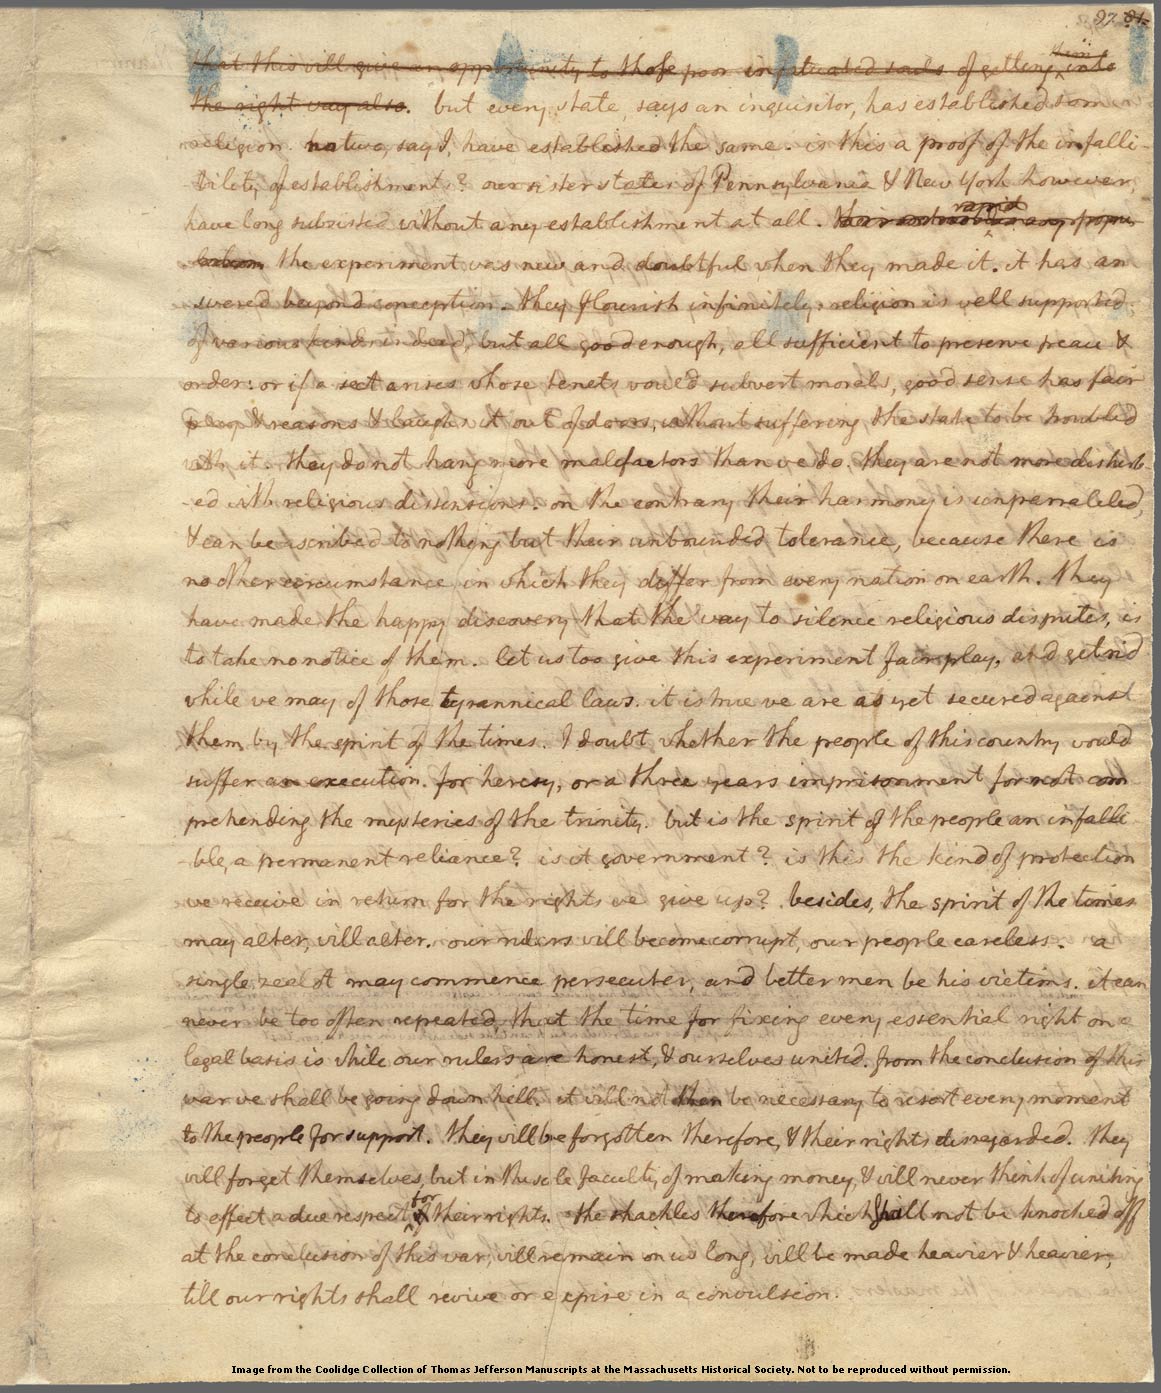 92 81.
that this will give an opportunity to those poor infatuated souls of getting them into
the right way also. but every state, says an inquisitor, has established some
religion. no two, say I, have established the same. is this a proof of the infalli-
-bility of establishments? our sister states of Pennsylvania & New York however,
have long subsisted without any establishment at all. rapid
the experiment was new and doubtful when they made it. it has an
swered beyond conception. they flourish infinitely. religion is well supported.
of various kinds indeed, but all good enough, all sufficient to preserve peace &
order: or if a sect arises whose tenets would subvert morals, good sense has fair
play & reasons & laughs it out of doors, without suffering the state to be troubled
with it. they do not hang more malefactors than we do. they are not more disturb-
-ed with religious dissensions. on the contrary their harmony is unparraleled,
& can be ascribed to nothing but their unbounded tolerance, because there is
no other circumstance in which they differ from every nation on earth. they
have made the happy discovery that the way to silence religious disputes, is
to take no notice of them. let us too give this experiment fair play, and get rid
while we may of those tyrannical laws. it is true we are as yet secured against
them by the spirit of the times. I doubt whether the people of this country would
suffer an execution for heresy, or a three years imprisonment for not com
prehending the mysteries of the trinity. but is the spirit of the people an infalli
-ble, a permanent reliance? is it government? is this the kind of protection
we receive in return for the rights we give up? besides, the spirit of the times
may alter, will alter. our rulers will become corrupt, our people careless. a
single zealot may commence persecuter, and better men be his victims. it can
never be too often repeated, that the time for fixing every essential right on a
legal basis is while our rulers are honest, & ourselves united. from the conclusion of this
war we shall be going down hill. it will not then be necessary to resort every moment
to the people for support. they will be forgotten therefore, & their rights disregarded. they
will forget themselves, but in the sole faculty of making money, & will never think of uniting
to effect a due respect for their rights. the shackles therefore which shall not be knocked off
at the conclusion of this war, will remain on us long, will be made heavier & heavier,
till our rights shall revive or expire in a convulsion.
Image from the Coolidge Collection of Thomas Jefferson Manuscripts at the Massachusetts Historical Society. Not to be reproduced without permission.